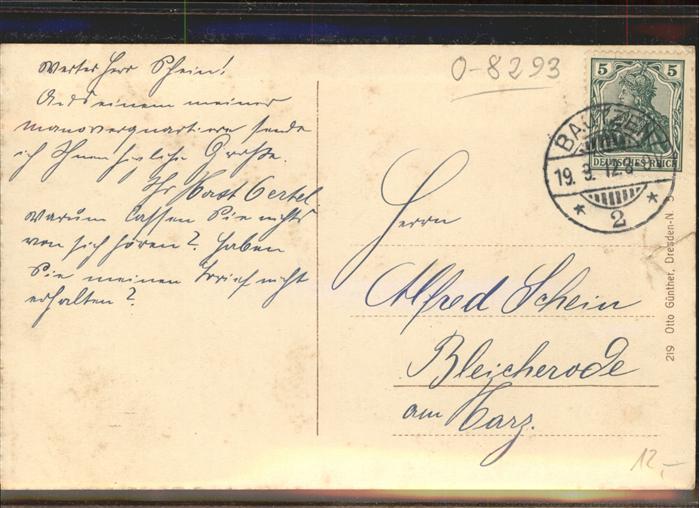 Werter Herr Schein!
Aus einem meiner
Manöverquartiere sende
ich Ihnen herzliche Grüße.
Ihr Oertel.
Warum lassen Sie nichts
von sich hören? Haben
Sie meinen Brief nicht
erhalten?
0-8293
5 5
DEUTSCHES REICH
BAUTZEN
19. 9. 12. 8
* 2 *
Herrn
Alfred Schein
Bleicherode
am Harz.
219 Otto Günther, Dresden-N. 3
12,-